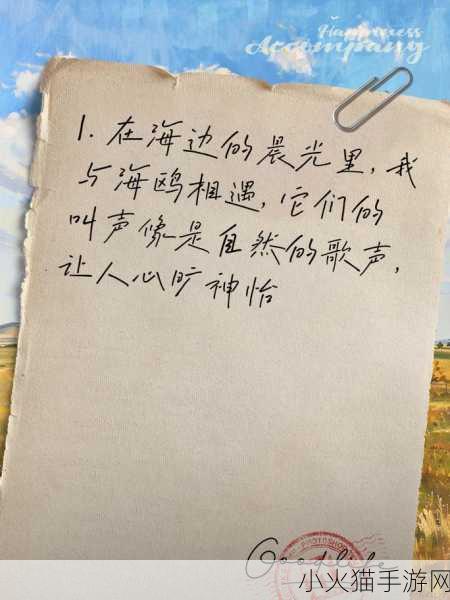 Happiness
Accompany
1. 在海边的晨光里,我
与海鸥相遇,它们的
叫声像是自然的歌声,
让人心旷神怡
Good life
PHOTOSHOP
小火猫手游网